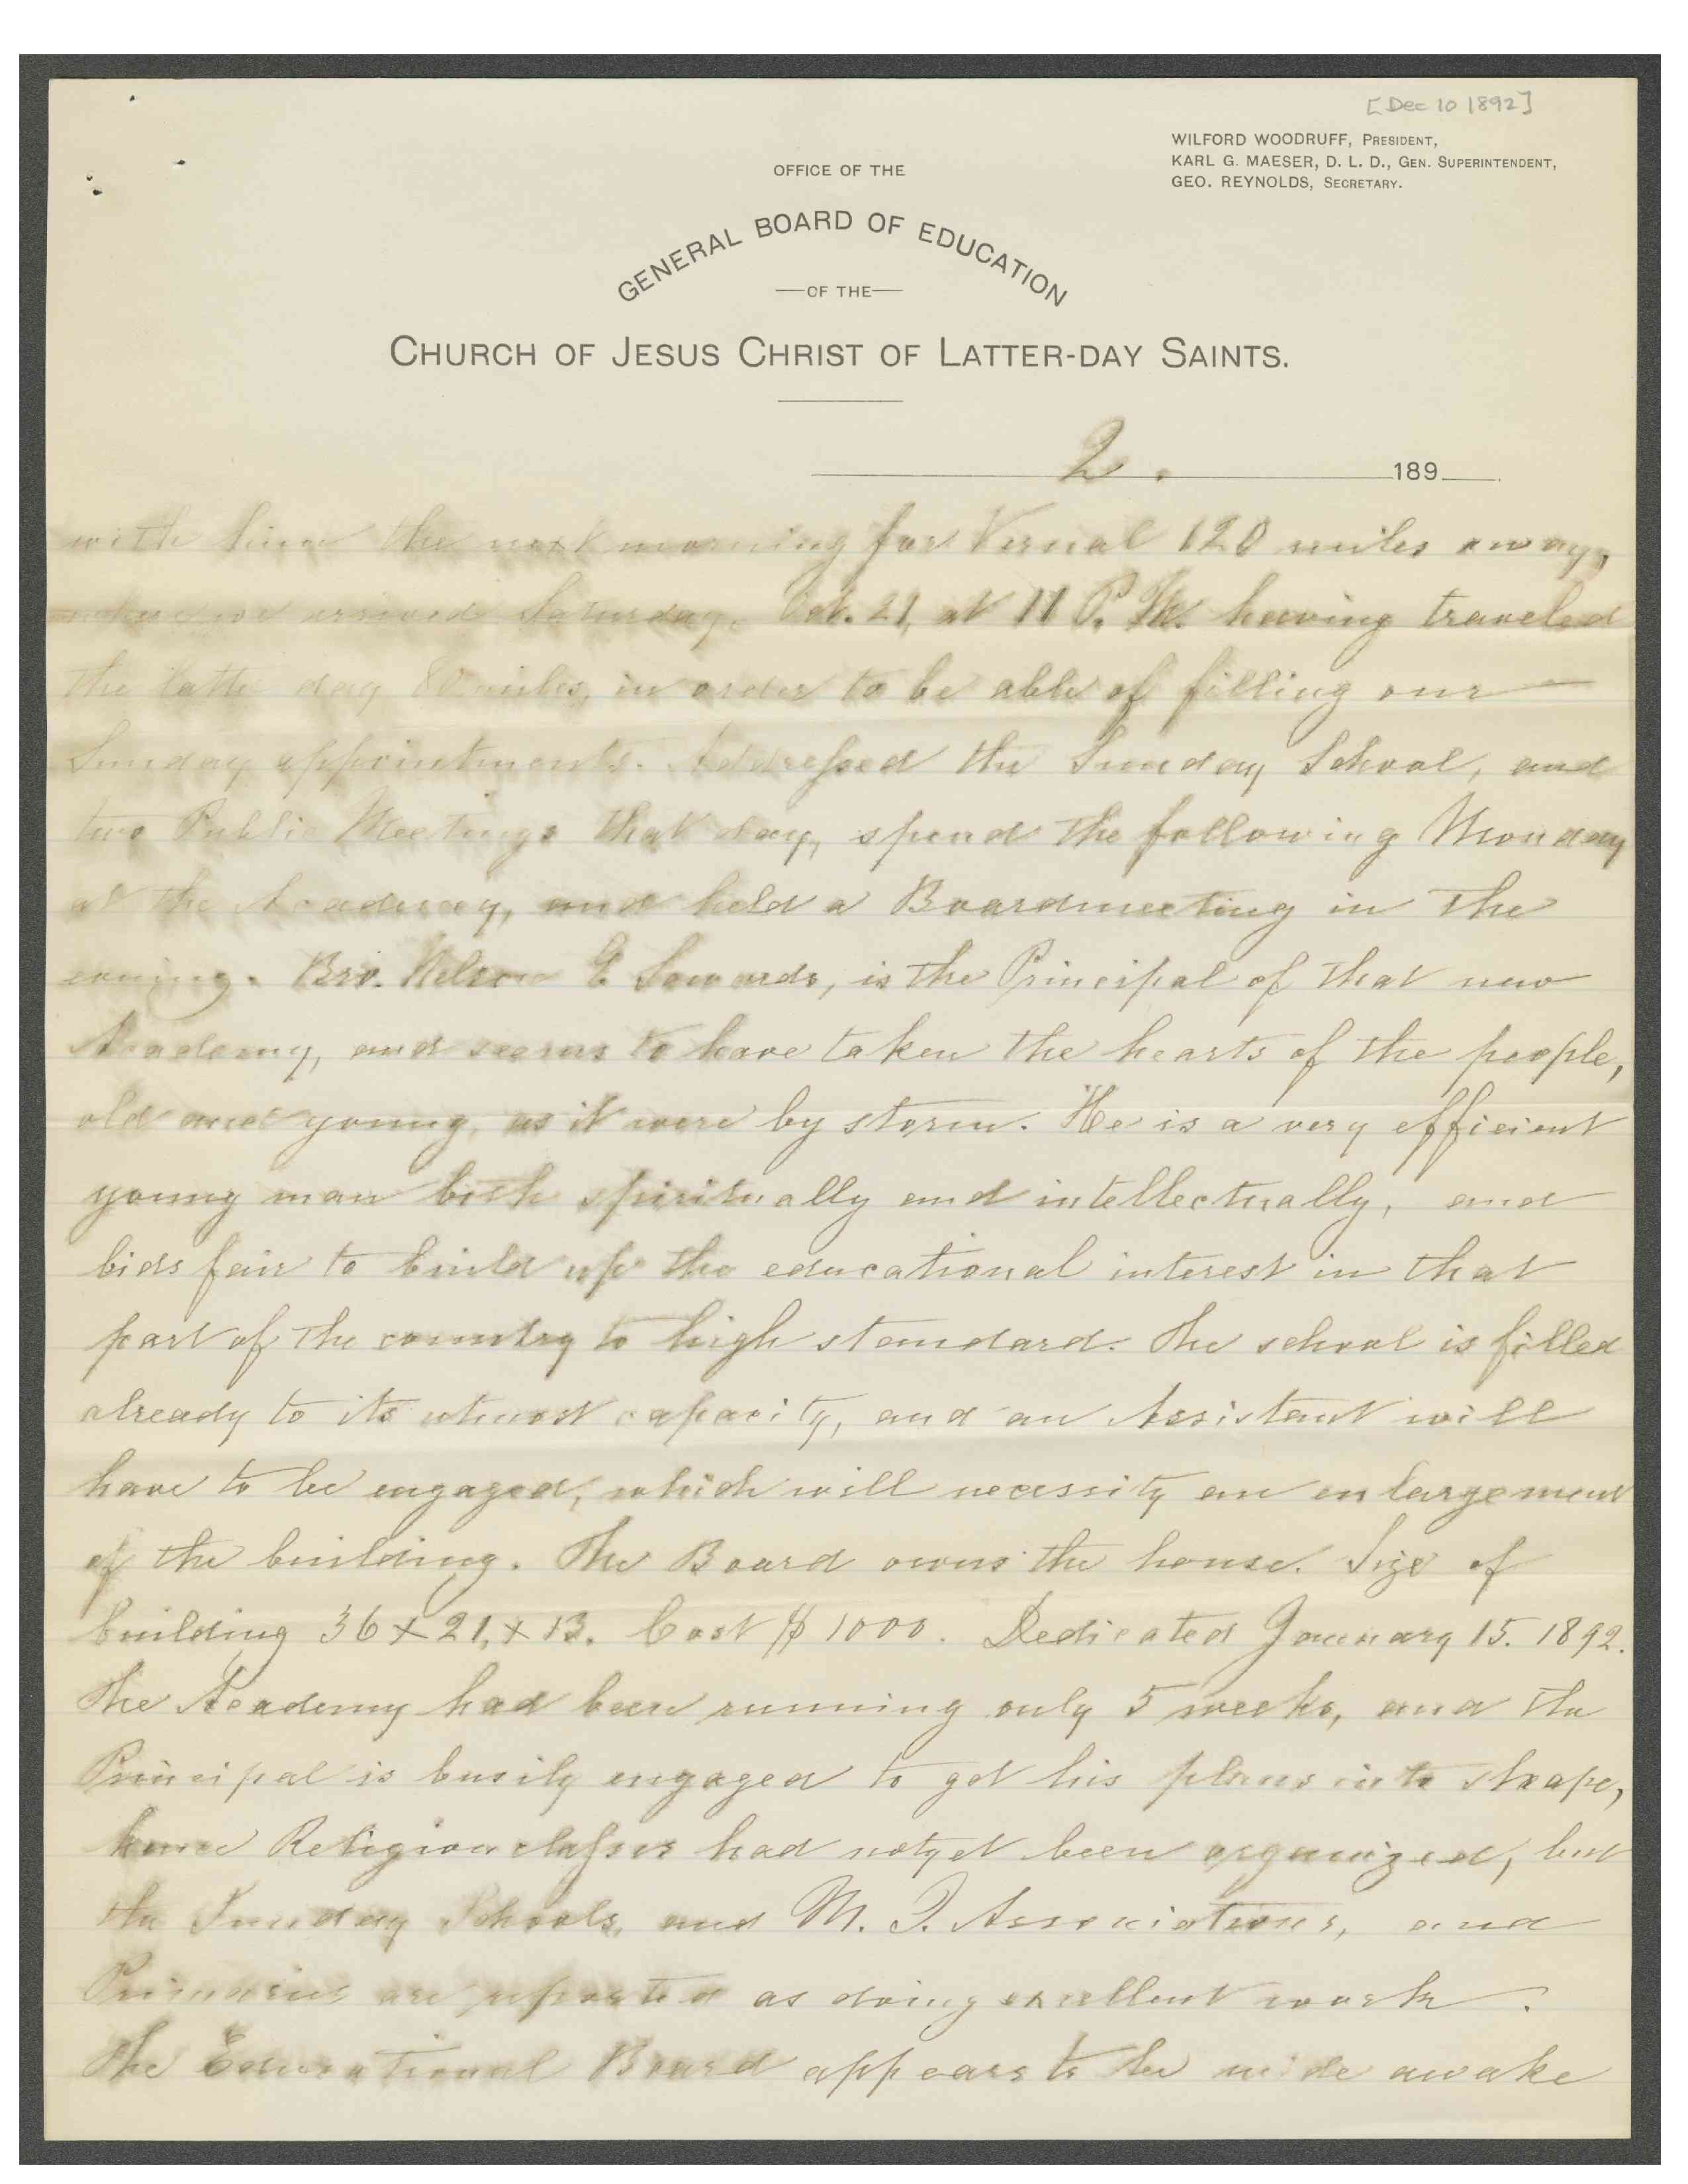 [Dec 10 1892]
WILFORD WOODRUFF, PRESIDENT,
KARL G. MAESER, D. L. D., GEN. SUPERINTENDENT,
GEO. REYNOLDS, SECRETARY.
OFFICE OF THE
GENERAL BOARD OF EDUCATION
—OF THE—
CHURCH OF JESUS CHRIST OF LATTER-DAY SAINTS.
2. 189
with him the next morning for Vernal 120 miles away,
where we arrived Saturday, Oct. 21, at 11 P. M. having traveled
the latter day 80 miles, in order to be able of filling our
Sunday appointments. Addressed the Sunday School, and
two Public Meetings that day, spend the following Monday
at the Academy, and held a Boardmeeting in the
evening. Bro. Nelson G. Sowards, is the Principal of that new
Academy, and seems to have taken the hearts of the people,
old and young, as it were by storm. He is a very efficient
young man both spiritually and intellectually, and
bids fair to build up the educational interest in that
part of the country to high standard. The school is filled
already to its utmost capacity, and an Assistant will
have to be engaged, which will necessity an enlargement
of the building. The Board owns the house. Size of
building 36 x 21, x 13. Cost $ 1000. Dedicated January 15. 1892.
The Academy had been running only 5 weeks, and the
Principal is busily engaged to get his plans into shape,
hence Religion classes had not yet been organized, but
the Sunday Schools, and M. I. Associations, and
Primaries are reported as doing excellent work.
The Educational Board appears to be wide awake